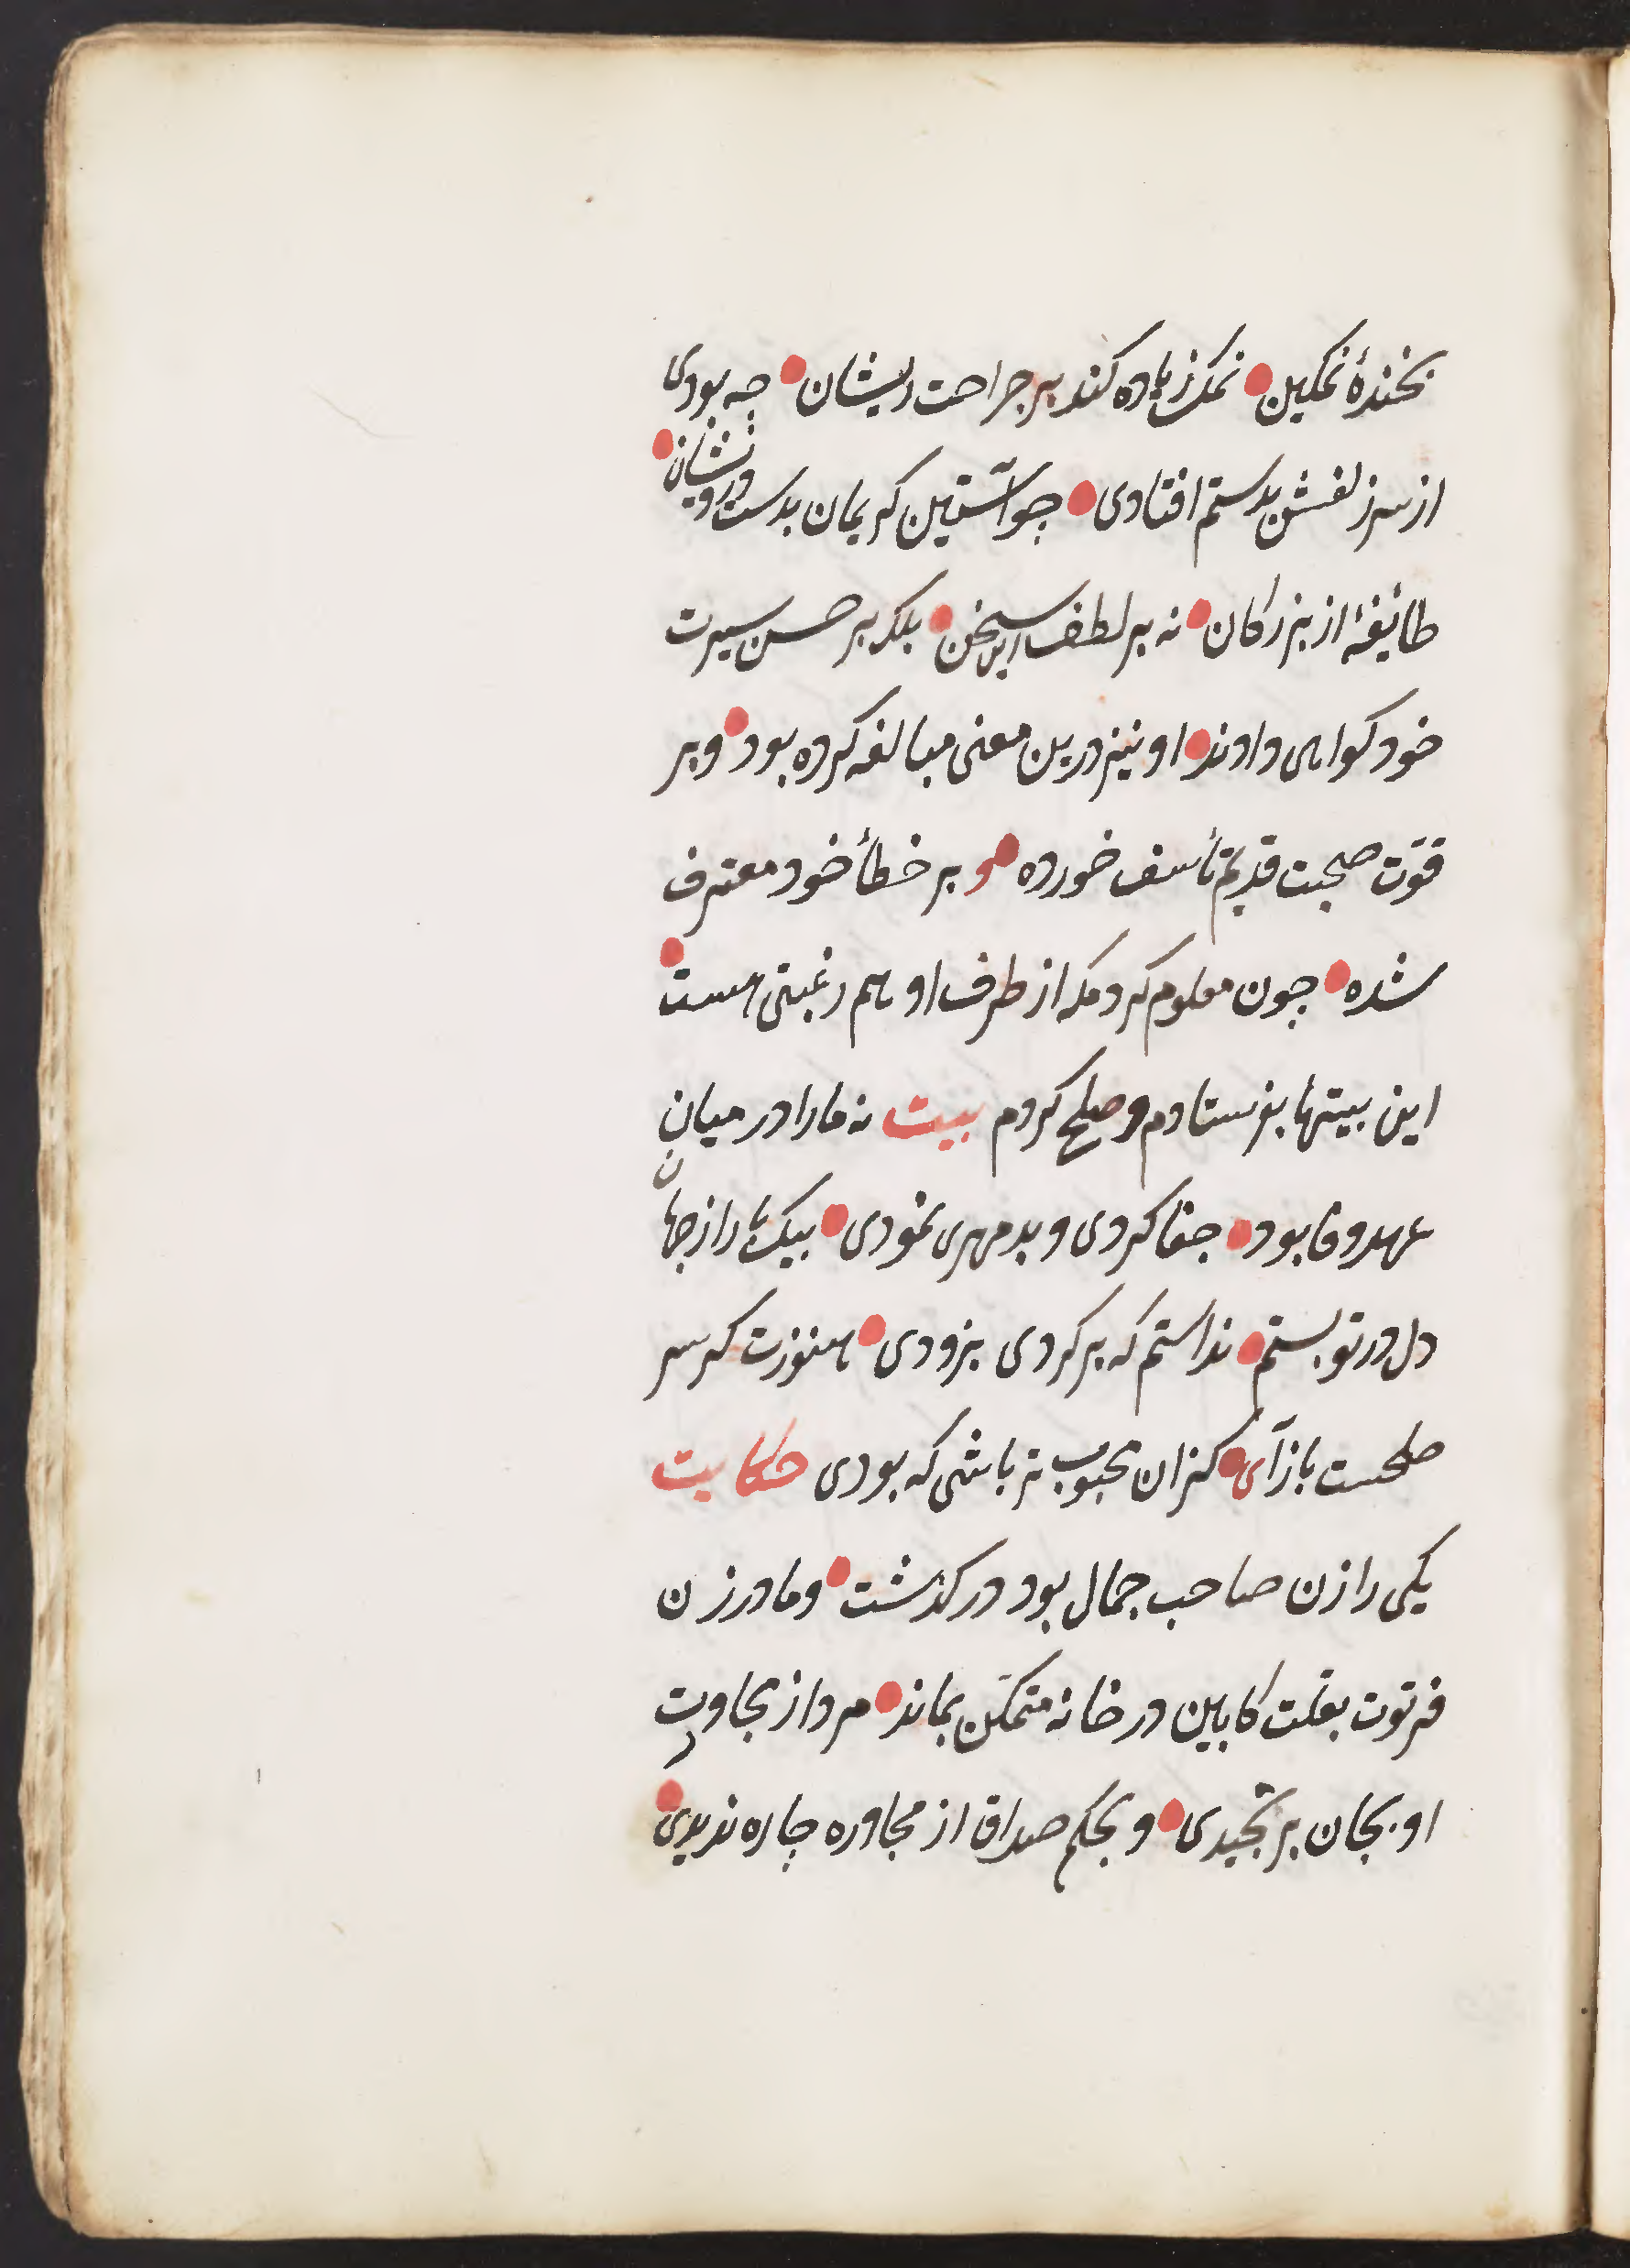 بخندهٔ نمکین نمک زیاده کند بر جراحت ریشان چه بودی
از سر زلفش بدستم افتادی چو آستین کریمان بدست درویشان
طائفهٔ از بزرکان نه بر لطف این سخن بلکه بر حسن سیرت
خود کواهی دادند او نیز درین معنی مبالغه کرده بود و بر
فوّت صحبت قدیم تأسف خورده و بر خطأ خود معترف
شده چون معلوم کردم که از طرف او هم رغبتی هست
این بیتها بفرستادم و صلح کردم بیت نه ما را در میان
عهد وفا بود جفا کردی و بدمهری نمودی بیک بار از جهان
دل در تو بستم ندانستم که برکردی بزودی هنوزت کر سر
صلحست بازآی کزان محبوب تر باشی که بودی حکایت
یکی را زن صاحب جمال بود درکذشت و مادر زن
فرتوت بعلت کابین در خانه متمکن بماند مرد از مجاورت
او بجان برنجیدی و بحکم صداق از مجاوره چاره ندیدی